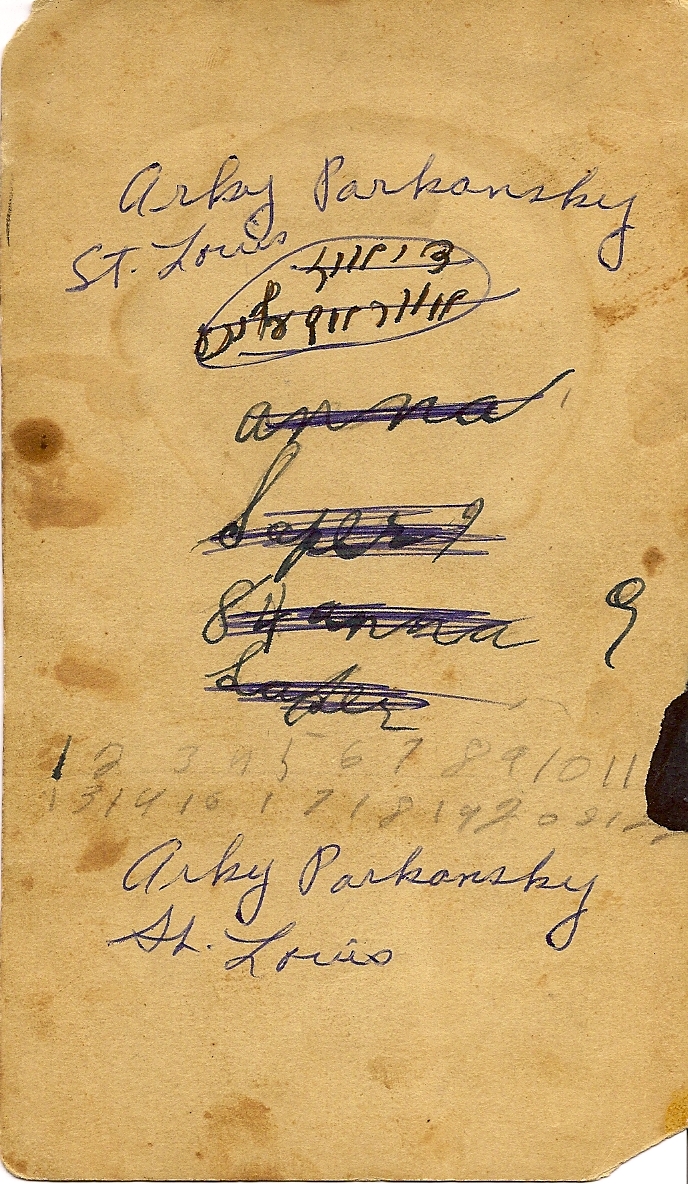 Arky Parkansky
St. Louis
anna
Soper 9
84 anna 9
Super
1 2 3 4 5 6 7 8 9 10 11
13 14 16 1 7 18 19 2 0 21 22
Arky Parkansky
St. Louis